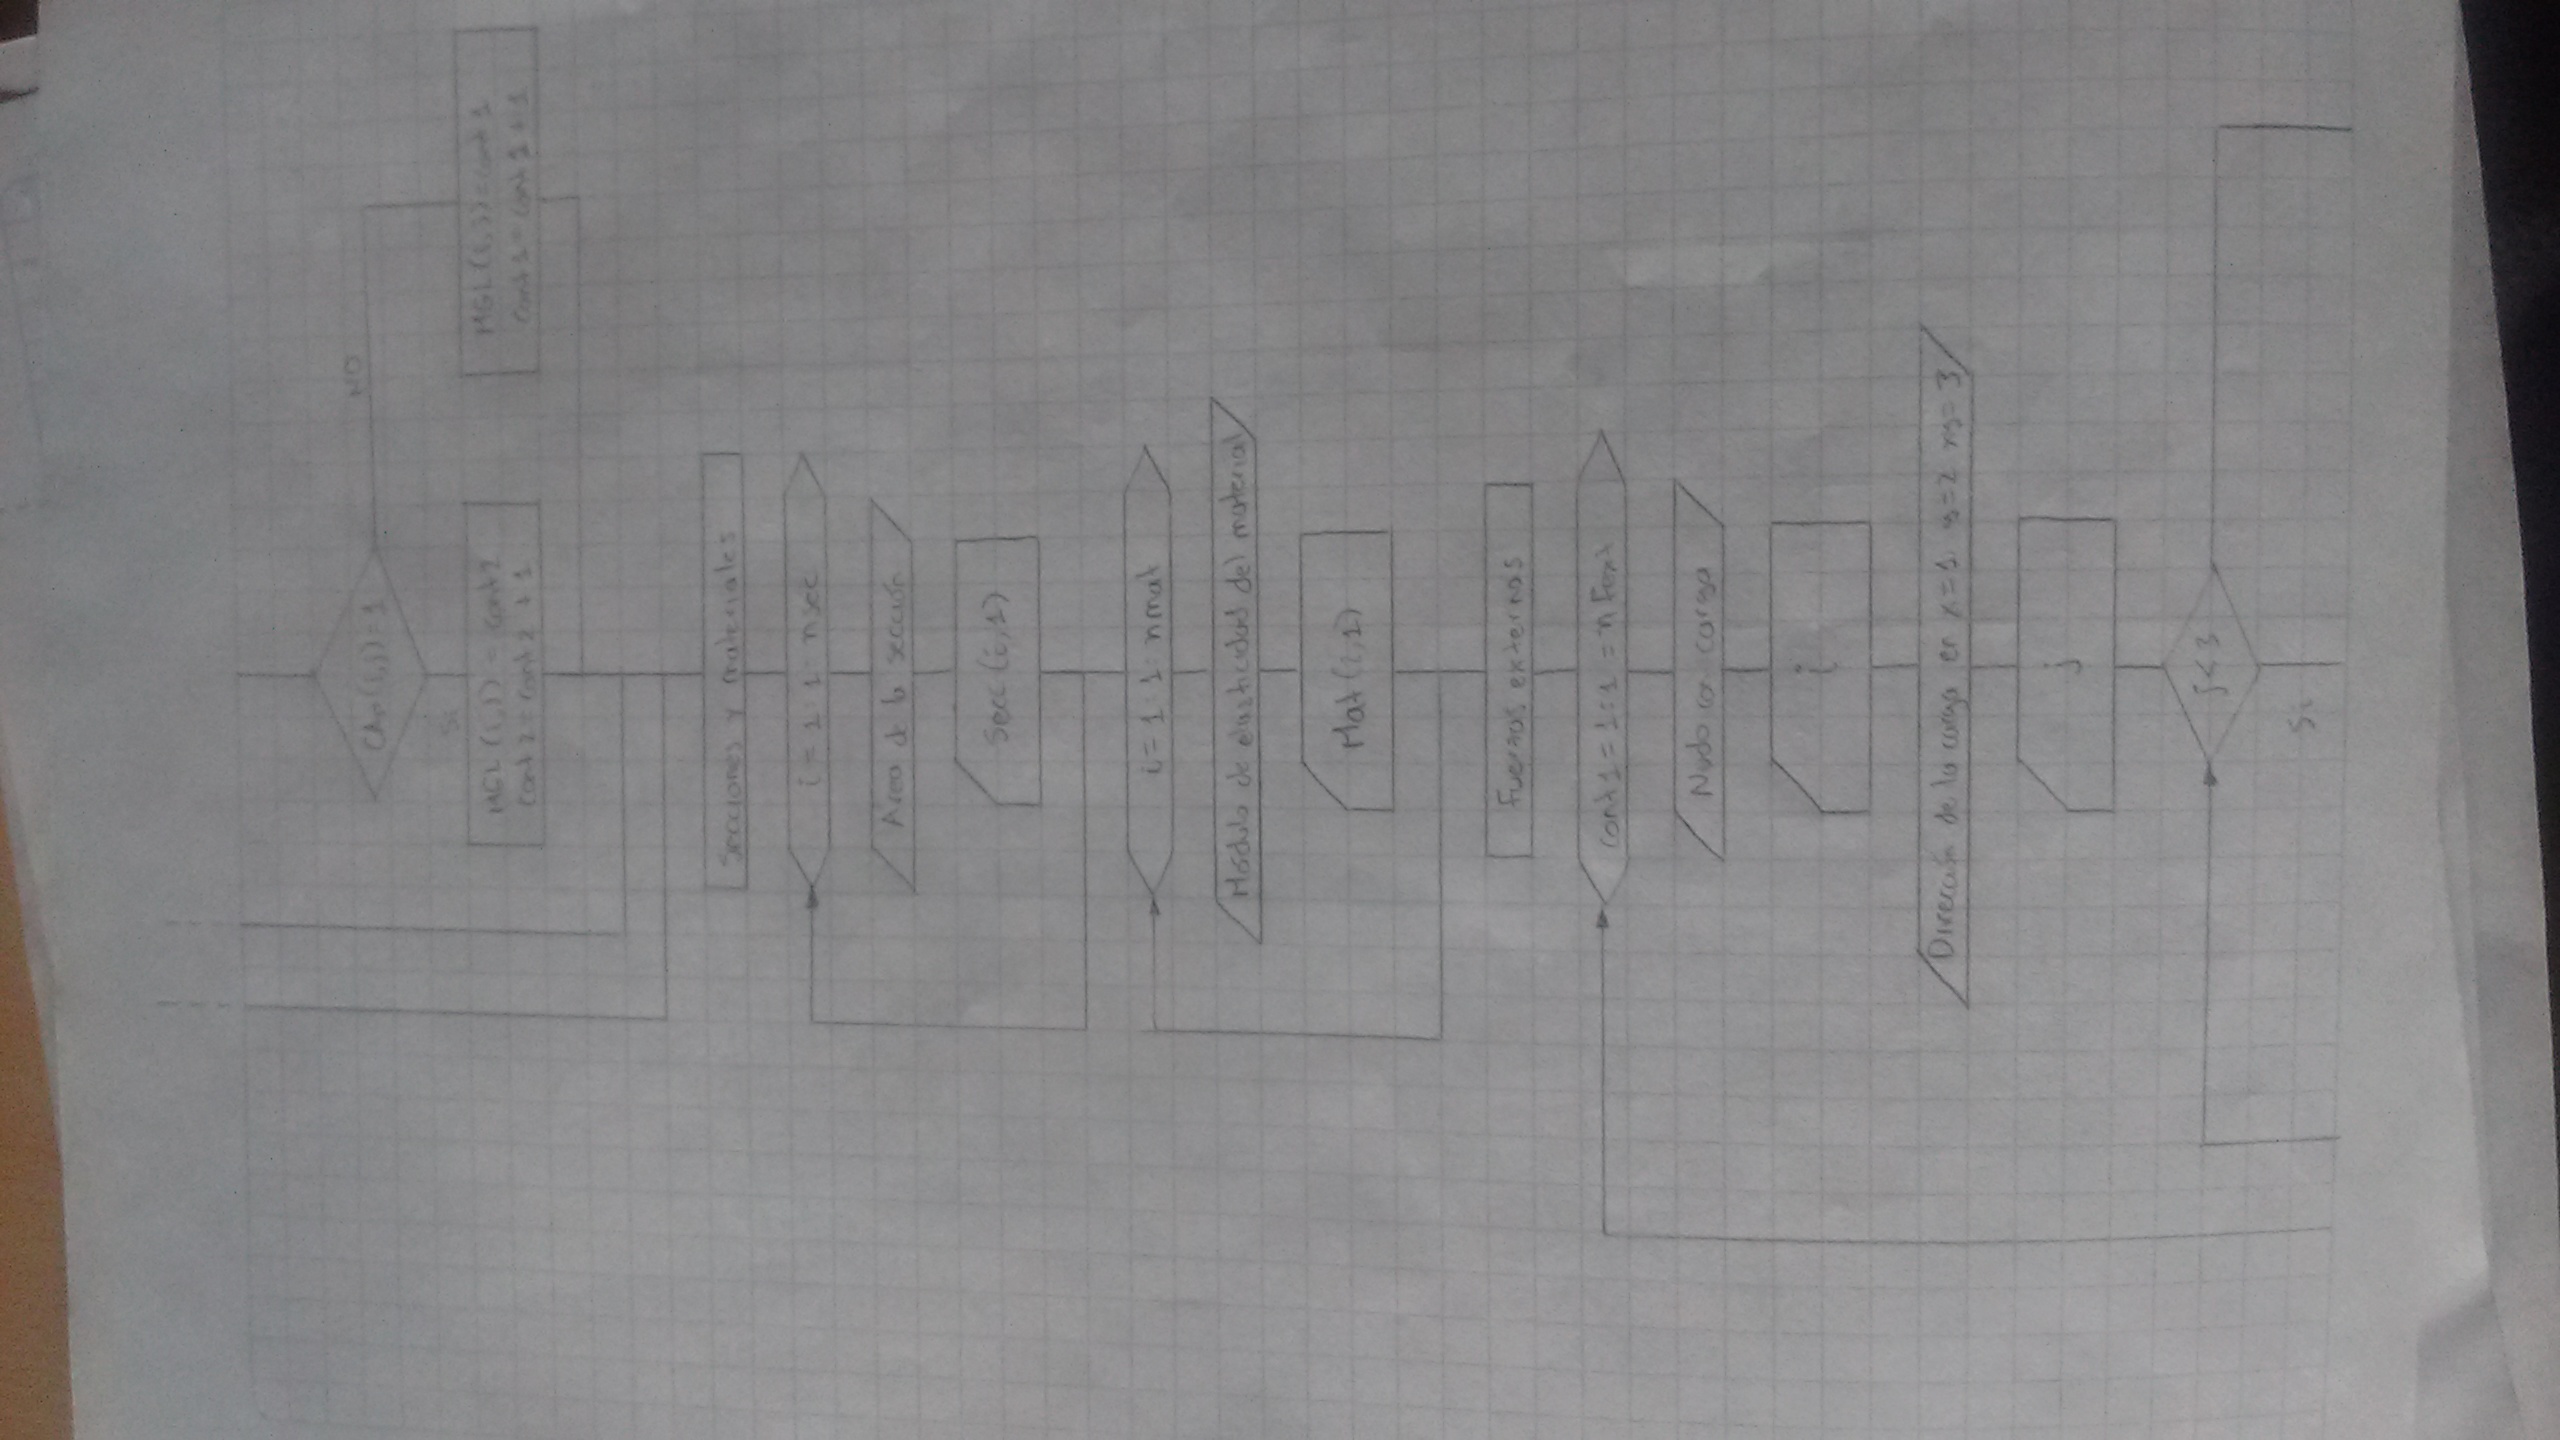 CAr(i,j)=1
NO
Si
MGL(i,j) = cont2
cont2 = cont2 + 1
MGL(i,j)=cont1
cont1 = cont1 + 1
Secciones y materiales
i = 1 : 1 : nsec
Área de la sección
Secc (i,1)
i = 1 : 1 : nmat
Módulo de elasticidad del material
Mat (i,1)
Fuerzas externas
cont1 = 1:1 = nFext
Nudo con carga
i
Dirección de la carga en x=1 y=2 xy=3
j
j<3
Si